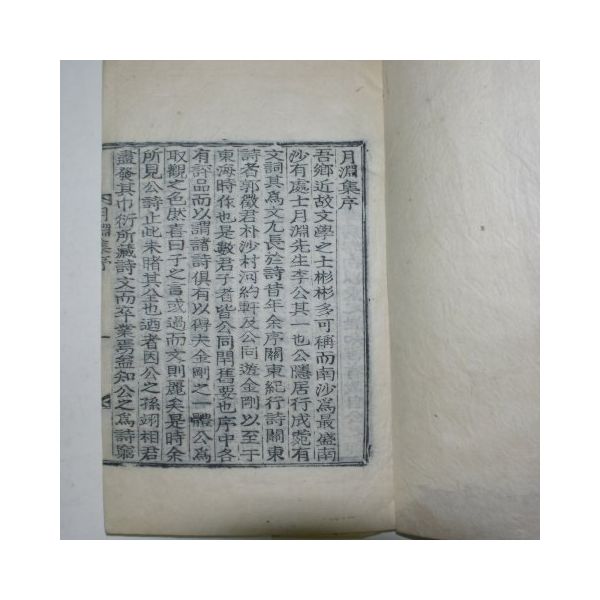 月淵集序
吾鄕近故文學之士彬彬多可稱而南沙爲最盛南
沙有處士月淵先生李公其一也公隱居行成蔚有
文詞其爲文尤長於詩昔年余序關東紀行詩關東
詩者郭徵君朴沙村河約軒及公同遊金剛以至于
東海時作也是數君子者皆公同閈舊要也序中各
有許品而以謂諸詩俱有以得夫金剛之一體公爲
取觀之色然喜曰子之言或過而文則麗矣是時余
所見公詩止此未睹其全也迺者因公之孫翊相君
盡發其巾衍所藏詩文而卒業焉益知公之爲詩窮
月淵集序
一